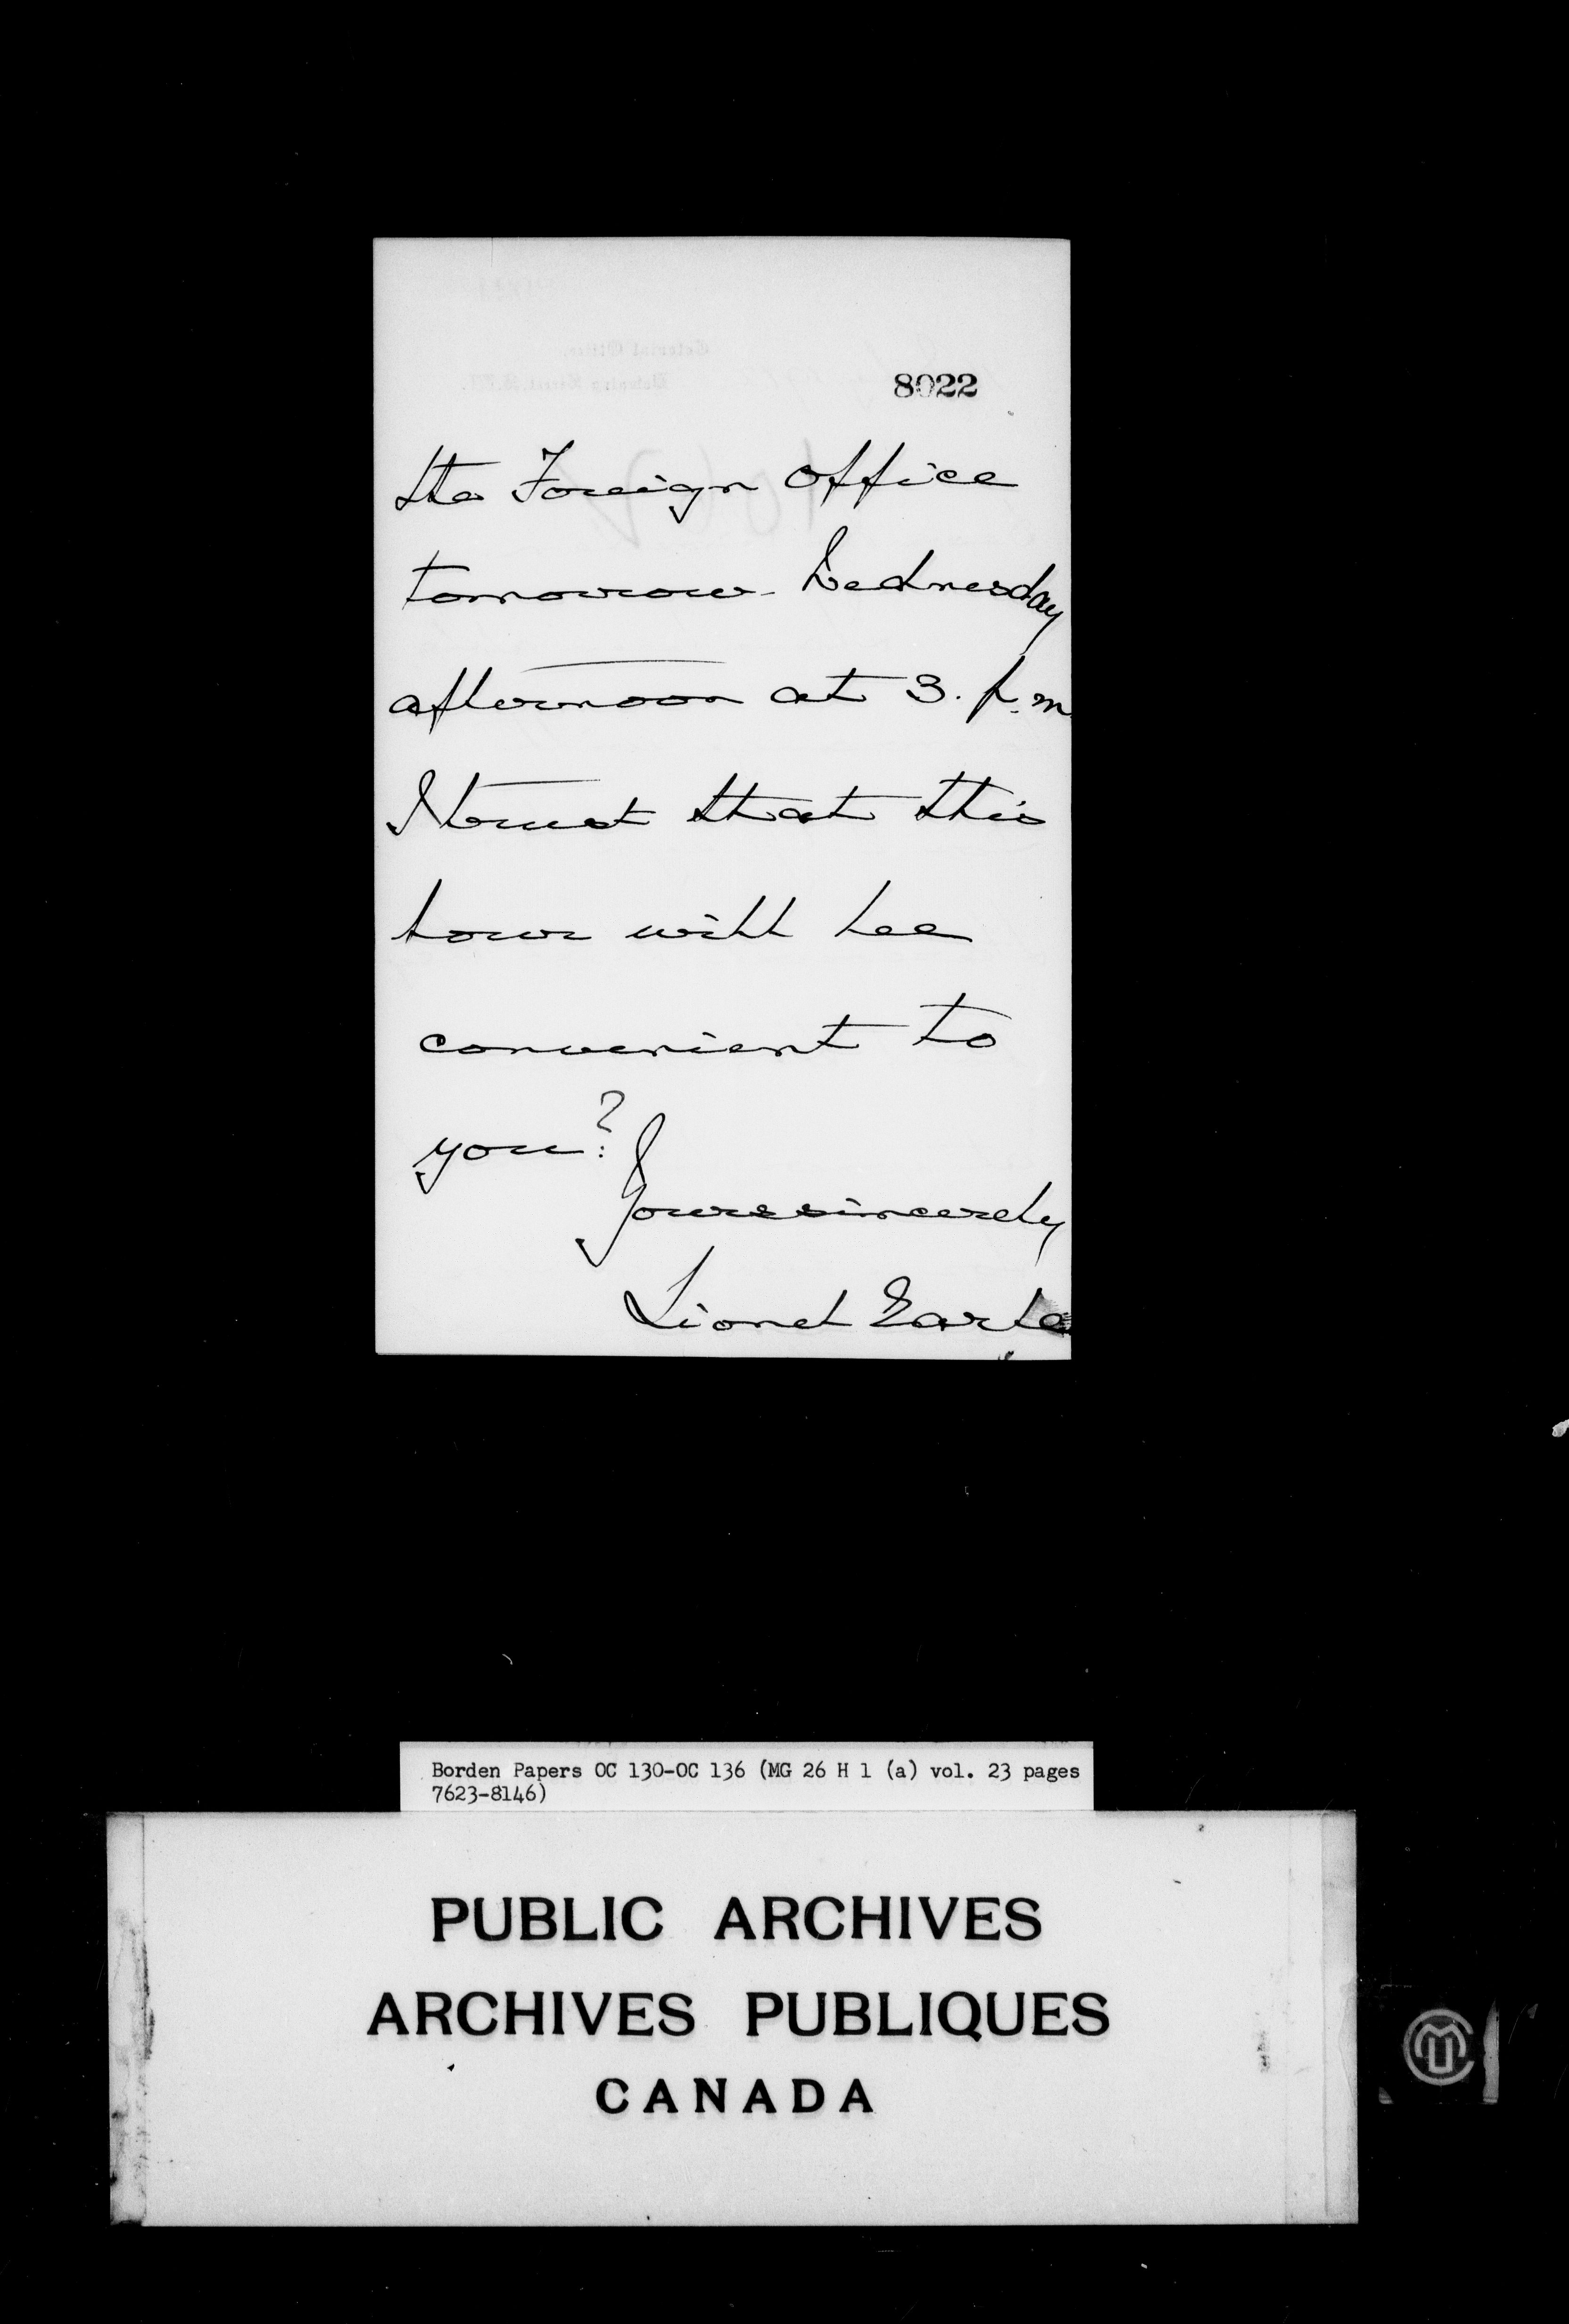 8022
the Foreign Office
tomorrow - Wednesday
afternoon at 3. p.m.
I trust that this
hour will be
convenient to
you?
Yours sincerely
Lionel Earle
Borden Papers OC 130-OC 136 (MG 26 H 1 (a) vol. 23 pages
7623-8146)
PUBLIC ARCHIVES
ARCHIVES PUBLIQUES
CANADA